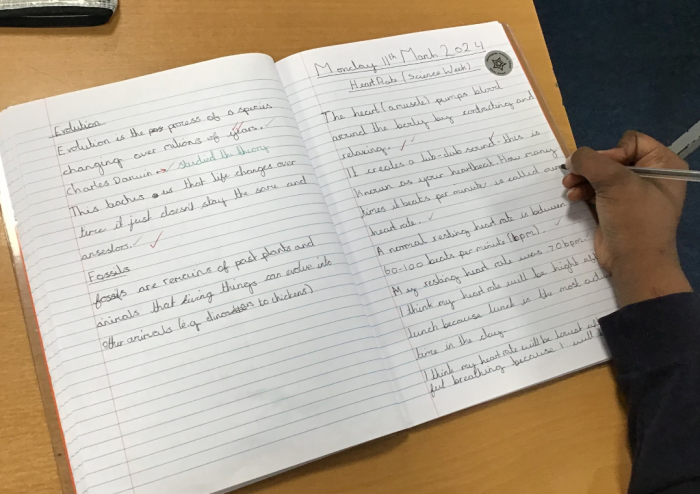 Evolution
Evolution is the process of a species
changing over milions of years.
Charles Darwin studied the theory
This teaches us that life changes over
time it just doesn't stay the same and
ansestors.
Fossils
fossils are remains of past plants and
animals that living things can evolve into
other animals (e.g dinosaurs to chickens)
Monday 11th March 2024
Heart Rate (Science Week)
The heart (a muscle) pumps blood
around the body by contracting and
relaxing.
It creates a lub-dub sound. this is
known as your heartbeat. How many
times it beats per minute is called
heart rate.
A normal resting heart rate is between
60-100 beats per minute (bpm).
My resting heart rate was 70bpm
I think my heart rate will be high
lunch because lunch is the most
time in the day.
I think my heart rate will be lowest
breathing because I will